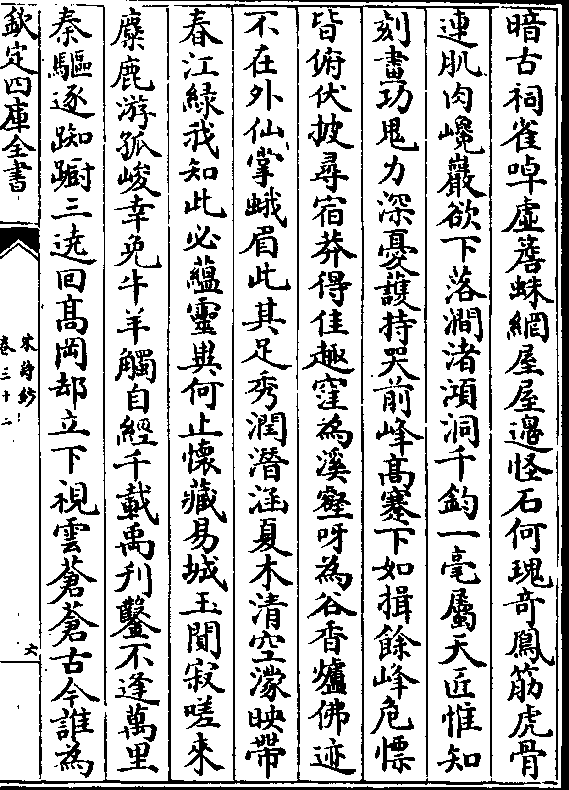 暗古祠雀啅虚簷蛛網屋屋邉怪石何瑰奇鳳筋虎骨
連肌肉巉巖欲下落澗渚澒洞千鈞一毫屬天匠惟知
刻畫功甩力深憂護持哭前峰髙騫下如揖餘峰危慓
皆俯伏披尋宿莽得佳趣窪為溪壑呀為谷香爐佛迹
不在外仙掌蛾眉此其足秀潤潛涵夏木清空濛映帶
春江緑我知此必藴靈異何止懷藏易城玉閴寂嗟來
麋鹿游孤峻幸免牛羊觸自經千載禹刋鑿不逢萬里
秦驅逐踟蹰三遶回髙岡却立下視雲蒼蒼古今誰為
欽定四庫全書
宋詩鈔
卷三十二
六